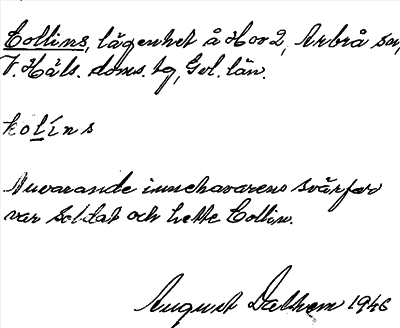 Collins, lägenhet å Hov 2, Arbrå sn,
V. Häls. doms. tg, Gvl. län.
kolíns
Nuvarande innehavarens svärfar
var soldat och hette Collin.
August Dalhem 1946